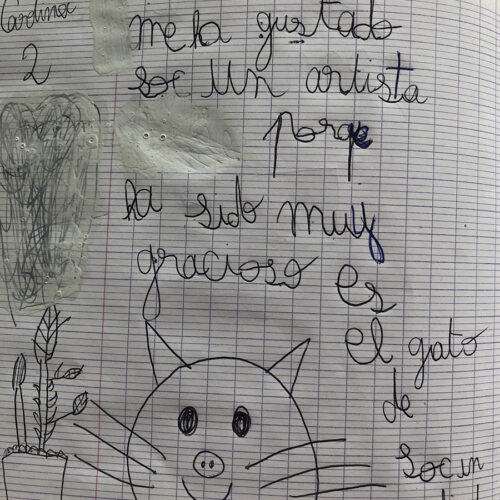 2
me ha gustado
soc un artista
porqe
ha sido muy
gracioso es
el gato
de
soc un